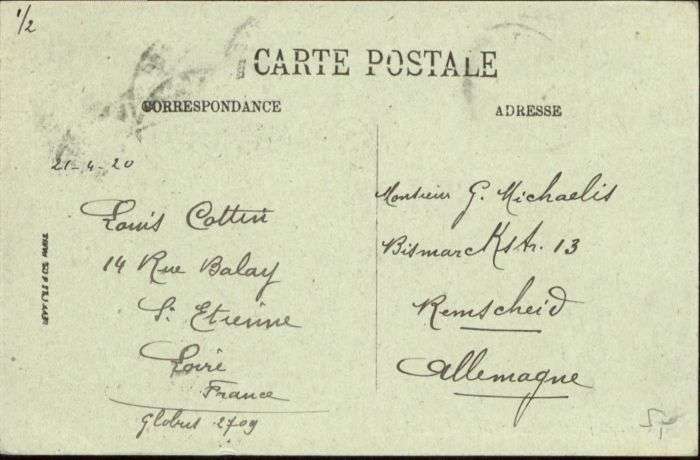 1/2
CARTE POSTALE
CORRESPONDANCE
ADRESSE
21-4-20
Louis Cottin
14 Rue Balay
St Etienne
Loire
France
Globus 2709
Monsieur G. Michaelis
BismarcKstr. 13
Remscheid
Allemagne